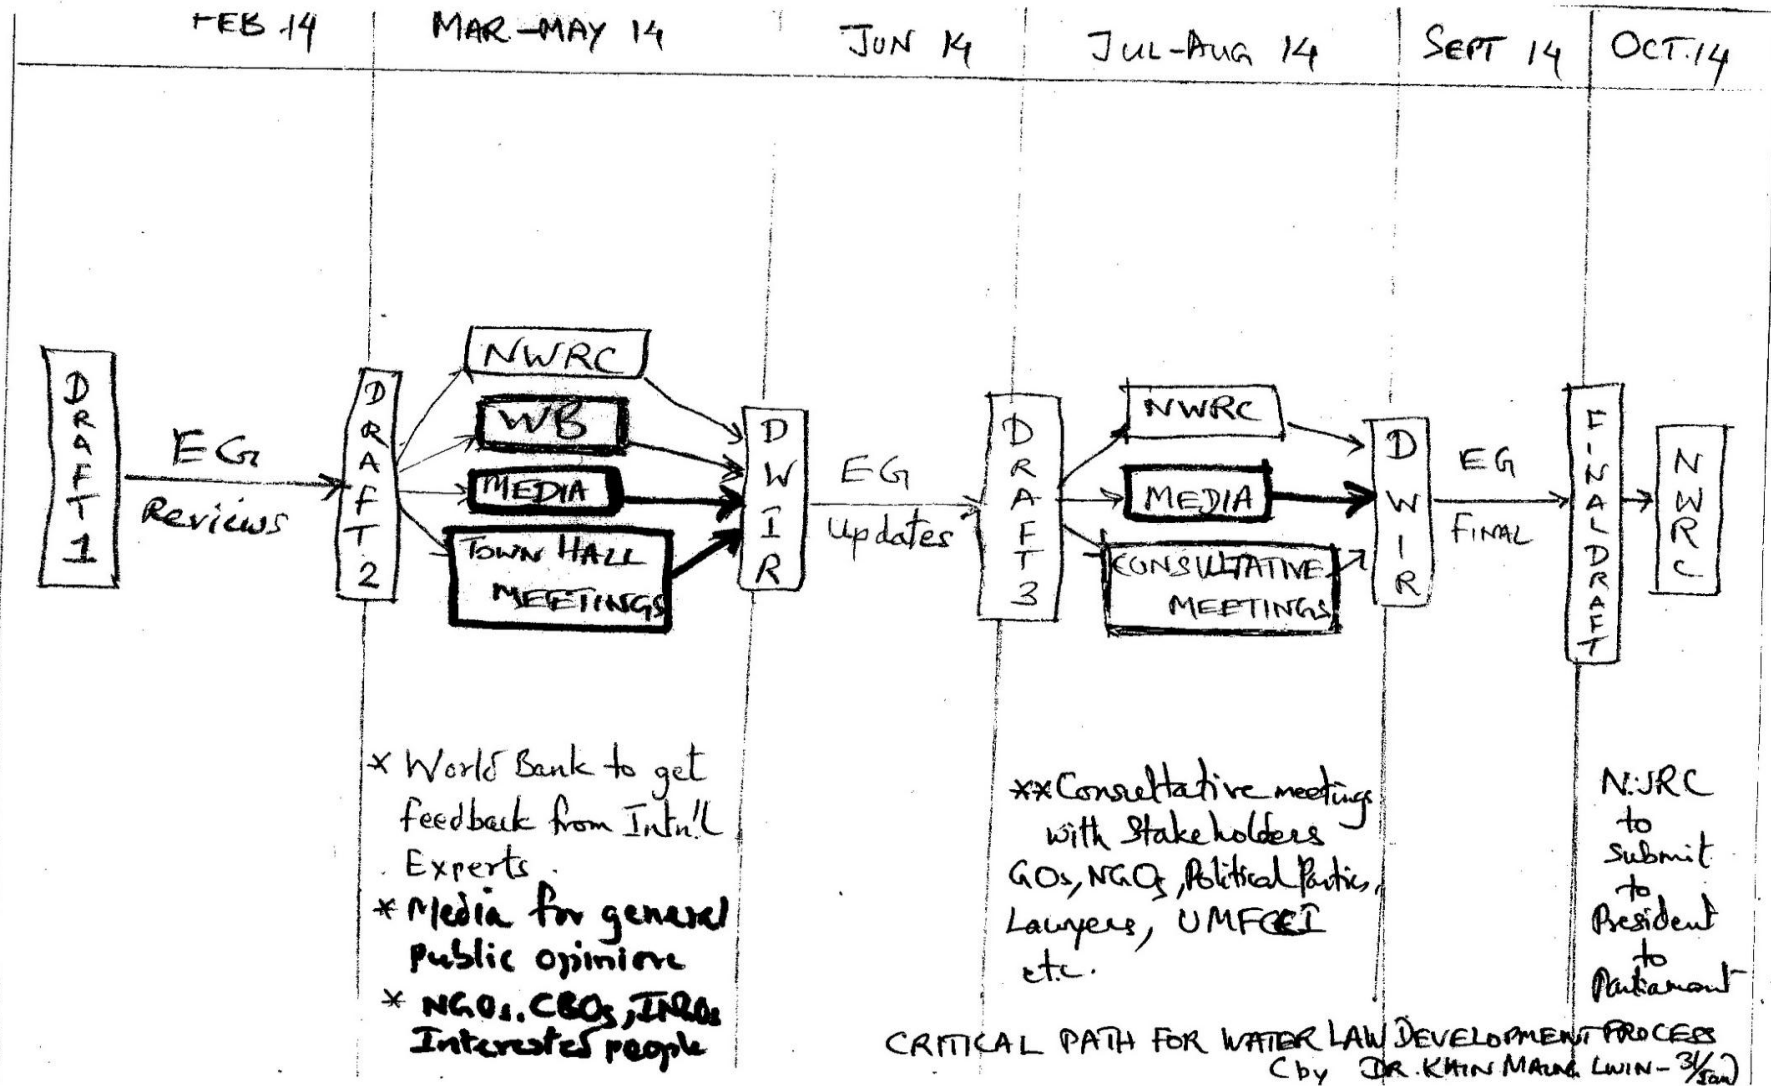 FEB 14
MAR-MAY 14
JUN 14
JUL-AUG 14
SEPT 14
OCT.14
DRAFT 1
EG
Reviews
DRAFT 2
NWRC
WB
MEDIA
TOWN HALL
MEETINGS
DWIR
EG
Updates
DRAFT 3
NWRC
MEDIA
CONSULTATIVE
MEETINGS
DWIR
EG
FINAL
FINAL DRAFT
NWRC
* World Bank to get
feedback from Intn'l
Experts.
* Media for general
public opinion
* NGOs, CBOs, INGOs
Interested people
**Consultative meetings
with Stakeholders
GOs, NGOs, Political Parties,
Lawyers, UMFCCI
etc.
NWRC
to
Submit
to
President
to
Parliament
CRITICAL PATH FOR WATER LAW DEVELOPMENT PROCESS
(by DR. KHIN MAUNG LWIN - 31/Jan)